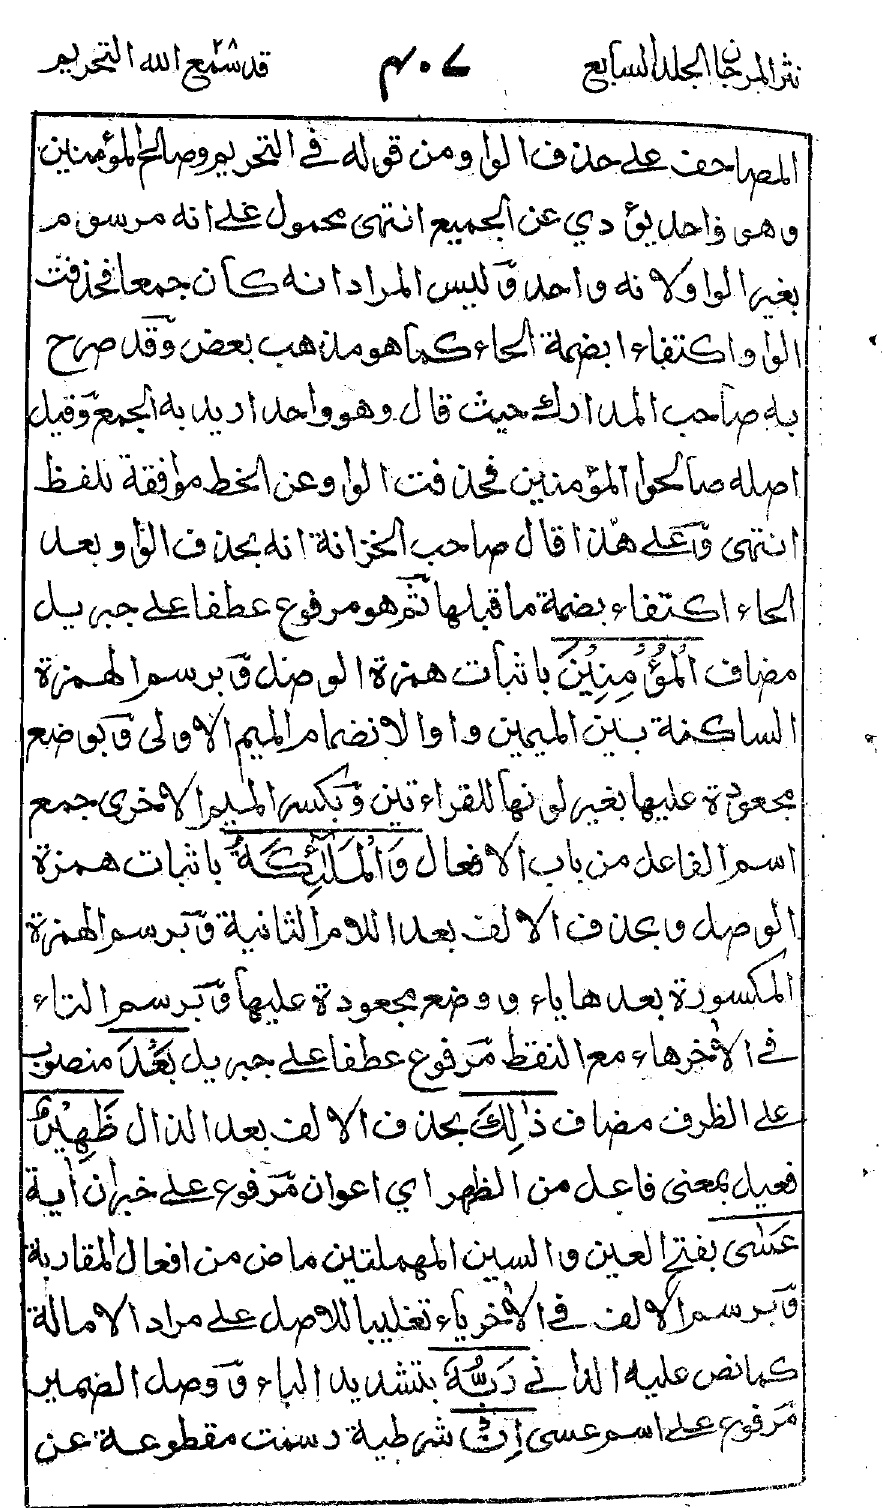 نثر المرجان الجلد السابع ٤٠٧ قد سمع الله ٢٨ التحريم
المصاحف على حذف الواو من قوله في التحريم وصالح المؤمنين
وهو واحد يؤدي عن الجميع انتهى محمول على انه مرسوم
بغير الواو لانه واحد وليس المراد انه كان جمعا فحذفت
الواو اكتفاء بضمة الحاء كما هو مذهب بعض وقد صرح
به صاحب المدارك حيث قال وهو واحد اريد به الجمع وقيل
اصله صالحوا المؤمنين فحذفت الواو عن الخط موافقة للفظ
انتهى وعلى هذا قال صاحب الخزانة انه بحذف الواو بعد
الحاء اكتفاء بضمة ما قبلها ثم هو مرفوع عطفا على جبريل
مضاف الْمُؤْمِنِيْنَ باثبات همزة الوصل وبرسم الهمزة
الساكنة بين الميمين واوا لانضمام الميم الاولى وبوضع
مجعودة عليها بغير لونها للقراءتين وبكسر الميم الاخرى جمع
اسم الفاعل من باب الافعال وَالْمَلٰٓئِكَةُ باثبات همزة
الوصل وبحذف الالف بعد اللام الثانية وبرسم الهمزة
المكسورة بعدها ياء ووضع مجعودة عليها وبرسم التاء
في الاخر هاء مع النقط مرفوع عطفا على جبريل بَعْدَ منصوب
على الظرف مضاف ذٰلِكَ بحذف الالف بعد الذال ظَهِيْرٌ
فعيل بمعنى فاعل من الظهر اي اعوان مرفوع على خبر ان اية
عَسٰى بفتح العين والسين المهملتين ماض من افعال المقاربة
وبرسم الالف في الاخر ياء تغليبا للاصل على مراد الامالة
كما نص عليه الداني رَبُّهٗ بتشديد الباء ووصل الضمير
مرفوع على اسم عسى اِنْ شرطية رسمت مقطوعة عن